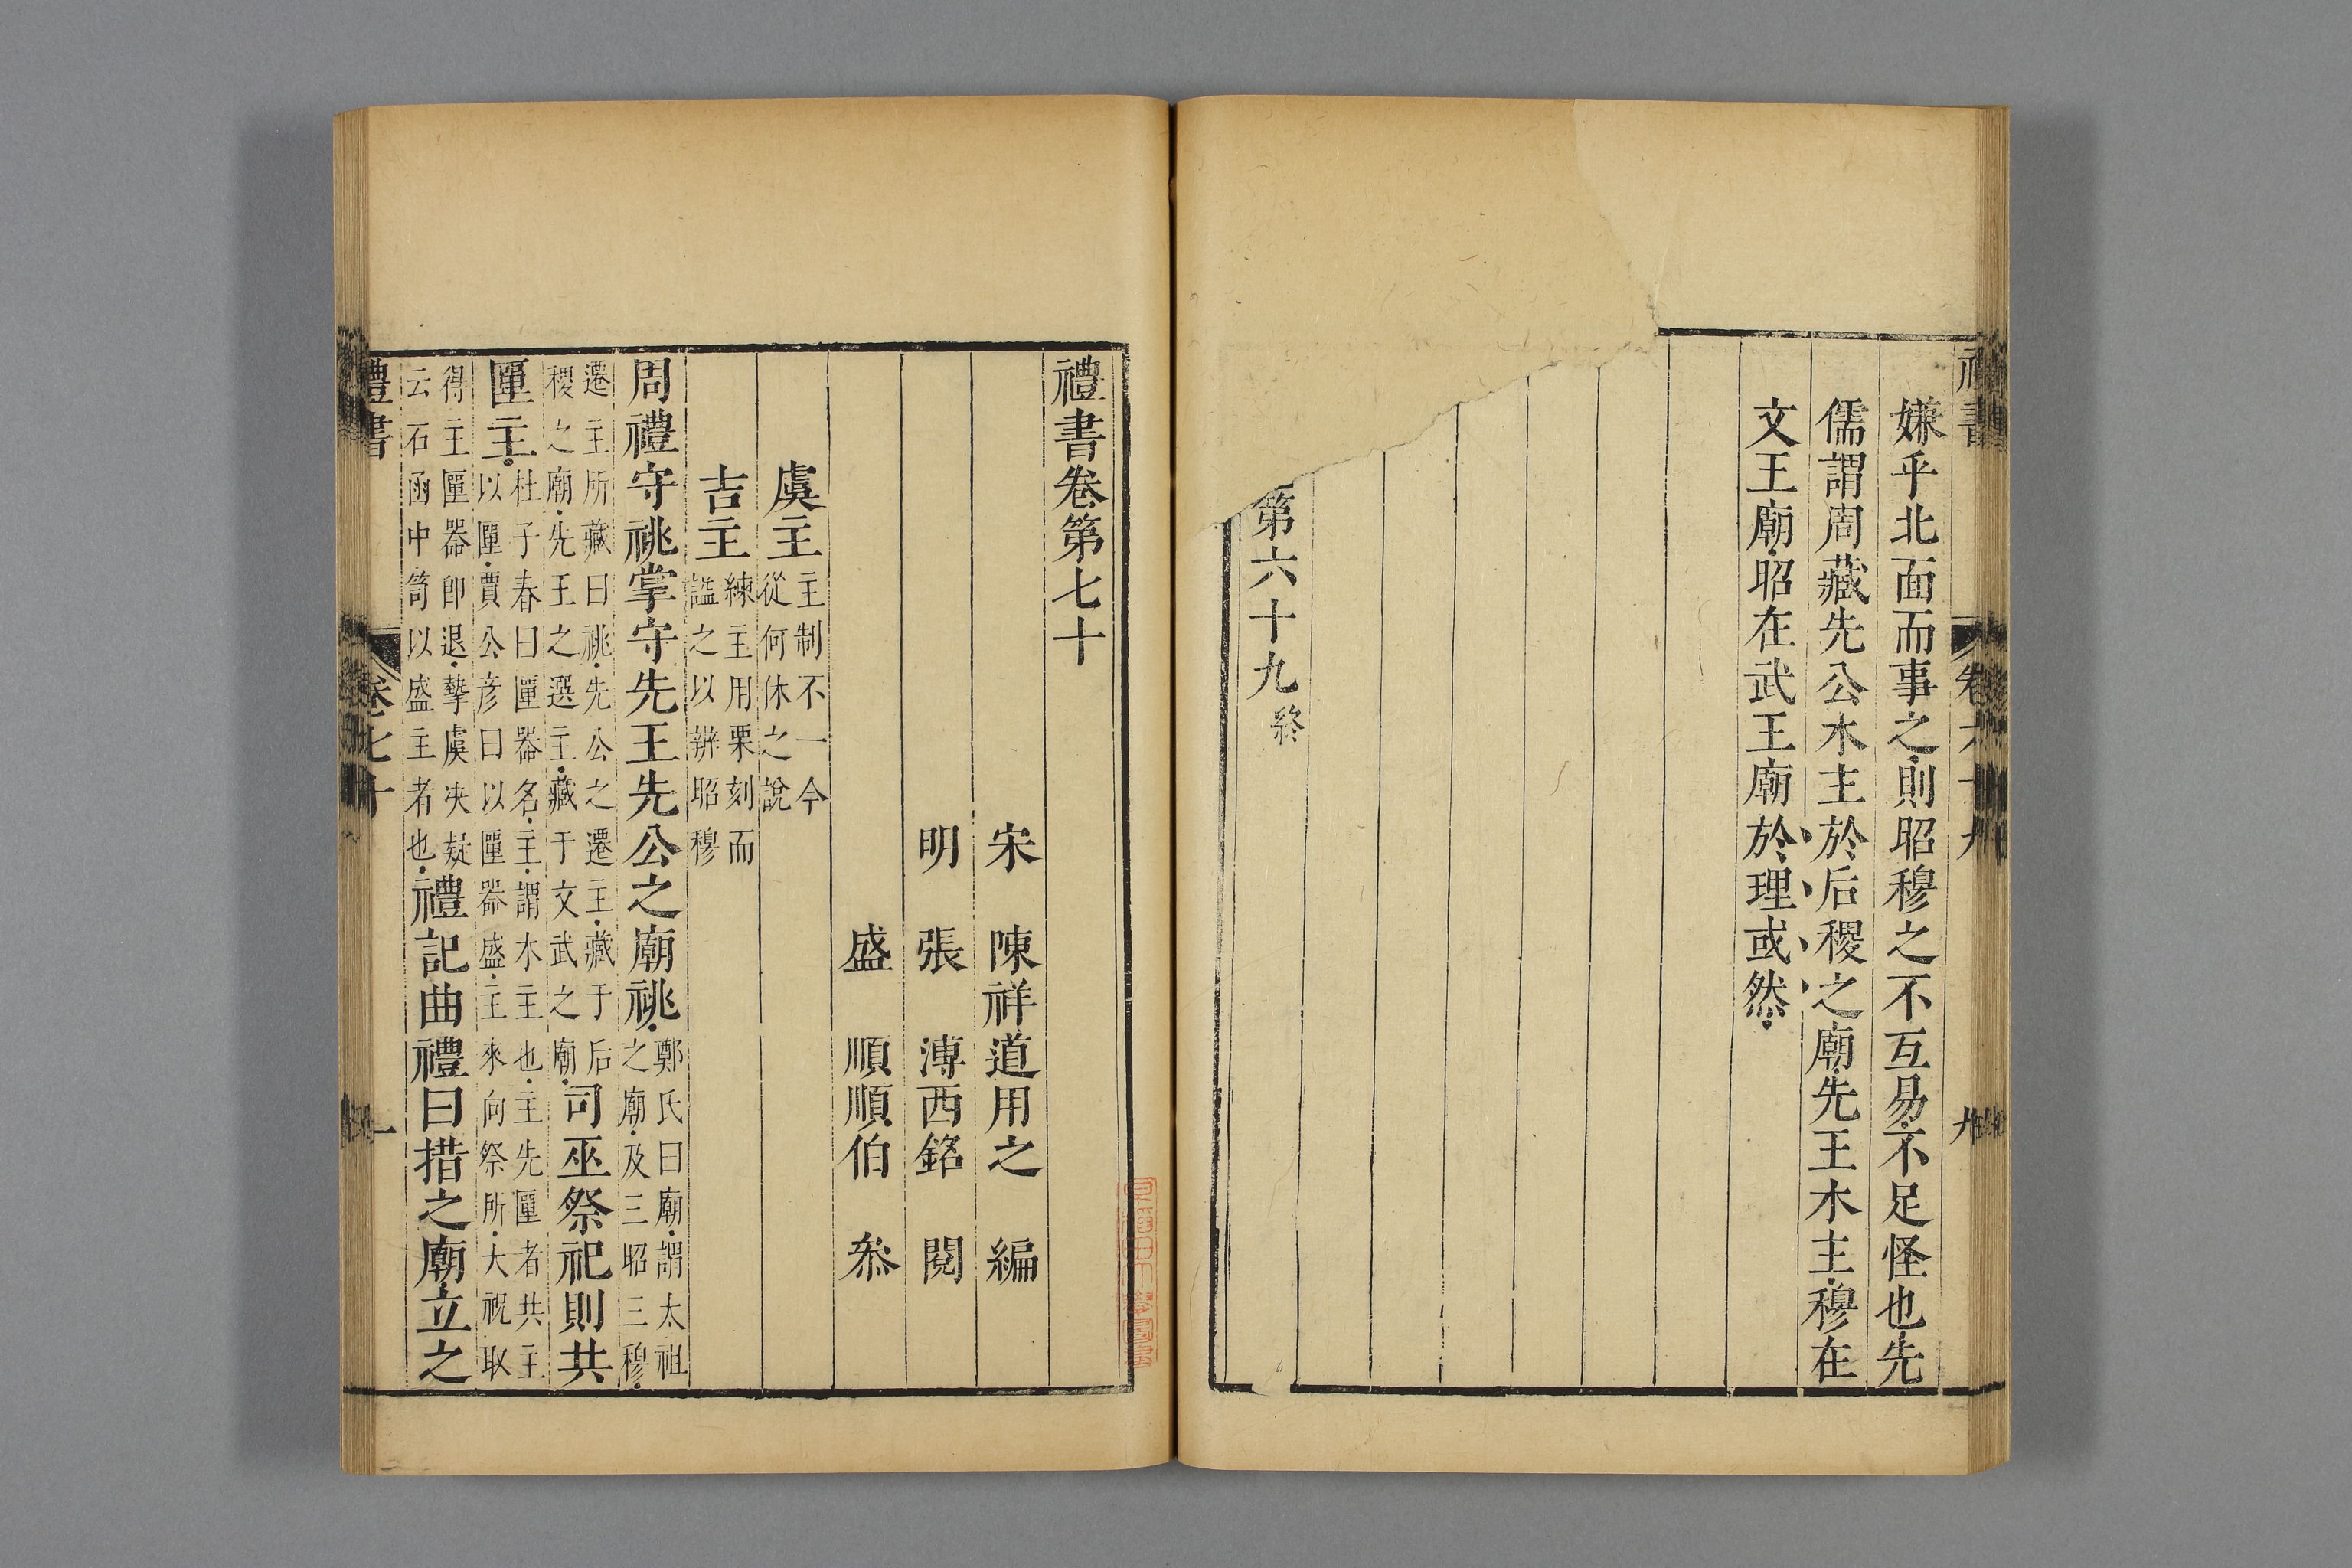 嫌乎北面而事之則昭穆之不互易不足怪也先
儒謂周藏先公木主於后稷之廟先王木主穆在
文王廟昭在武王廟於理或然
第六十九終
禮書卷第七十
宋 陳祥道用之 編
明 張 溥西銘 閱
盛 順順伯 叅
虞主主制不一今
從何休之說
吉主練主用栗刻而
謚之以辨昭穆
周禮守祧掌守先王先公之廟祧鄭氏曰廟謂太祖
之廟及三昭三穆
遷主所藏曰祧先公之遷主藏于后
稷之廟先王之遷主藏于文武之廟司巫祭祀則共
匰主杜子春曰匰器名主謂木主也主先匰者共主
以匰賈公彥曰以匰器盛主來向祭所大祝取
得主匰器卽退摯虞决疑
云石函中笥以盛主者也禮記曲禮曰措之廟立之
禮書 卷七十 一